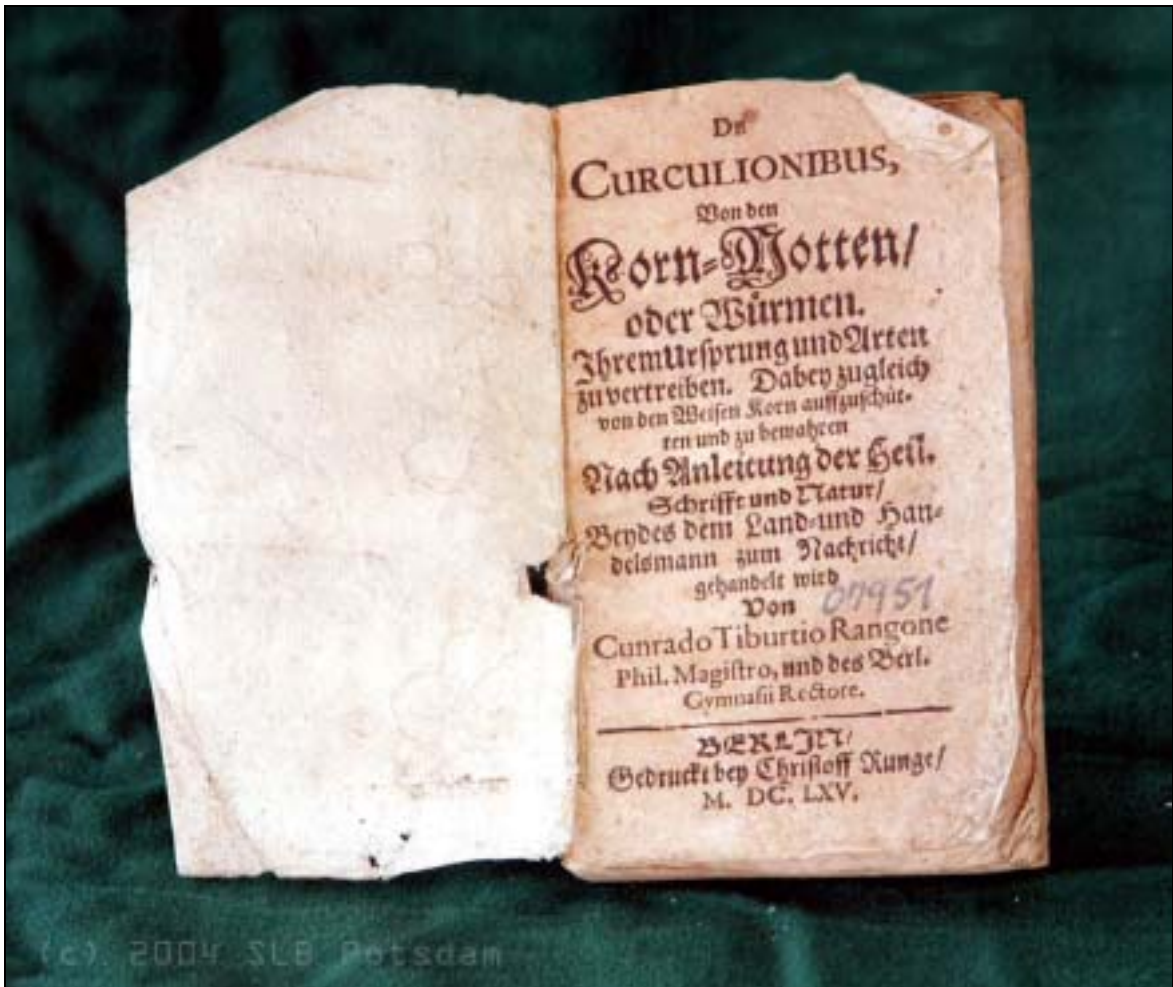 De
CURCULIONIBUS,
Von den
Korn-Motten/
oder Würmen.
Ihrem Ursprung und Arten
zu vertreiben. Dabey zugleich
von den Weisen Korn auffzuschüt-
ten und zu bewahren
Nach Anleitung der Heil.
Schrifft und Natur/
Beydes dem Land-und Han-
delsmann zum Nachricht/
gehandelt wird
Von 07951
Cunrado Tiburtio Rangone
Phil. Magistro, und des Berl.
Gymnasii Rectore.
BERLIN/
Gedruckt bey Christoff Runge/
M. DC. LXV.
(c) 2004 SLB Potsdam